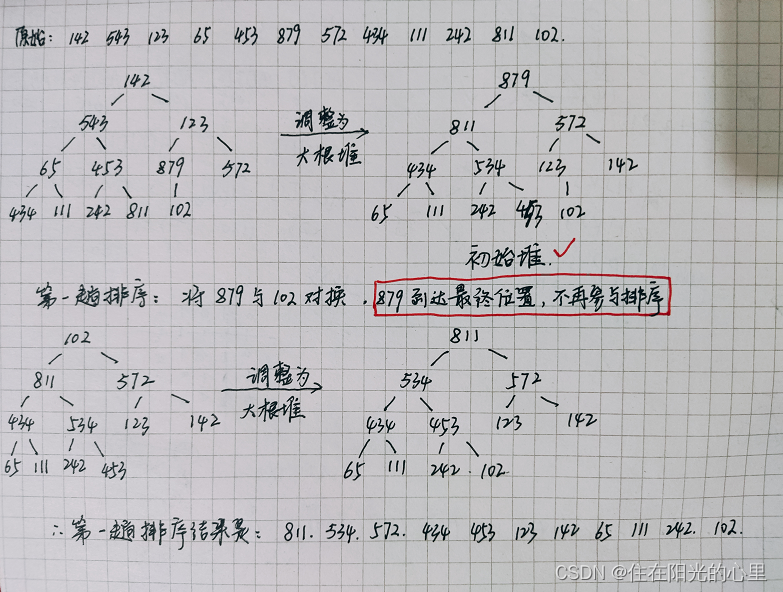 原始: 142 543 123 65 453 879 572 434 111 242 811 102.
142 879
543 123 调整为 811 572
65 453 879 572 大根堆 434 534 123 142
434 111 242 811 102 65 111 242 453 102
初始堆. ✓
第一趟排序: 将 879 与 102 对换. 879 到达最终位置, 不再参与排序
102 811
811 572 调整为 534 572
434 534 123 142 大根堆 434 453 123 142
65 111 242 453 65 111 242 102
∴ 第一趟排序结果是: 811. 534. 572. 434 453 123 142 65 111 242. 102.
CSDN @住在阳光的心里